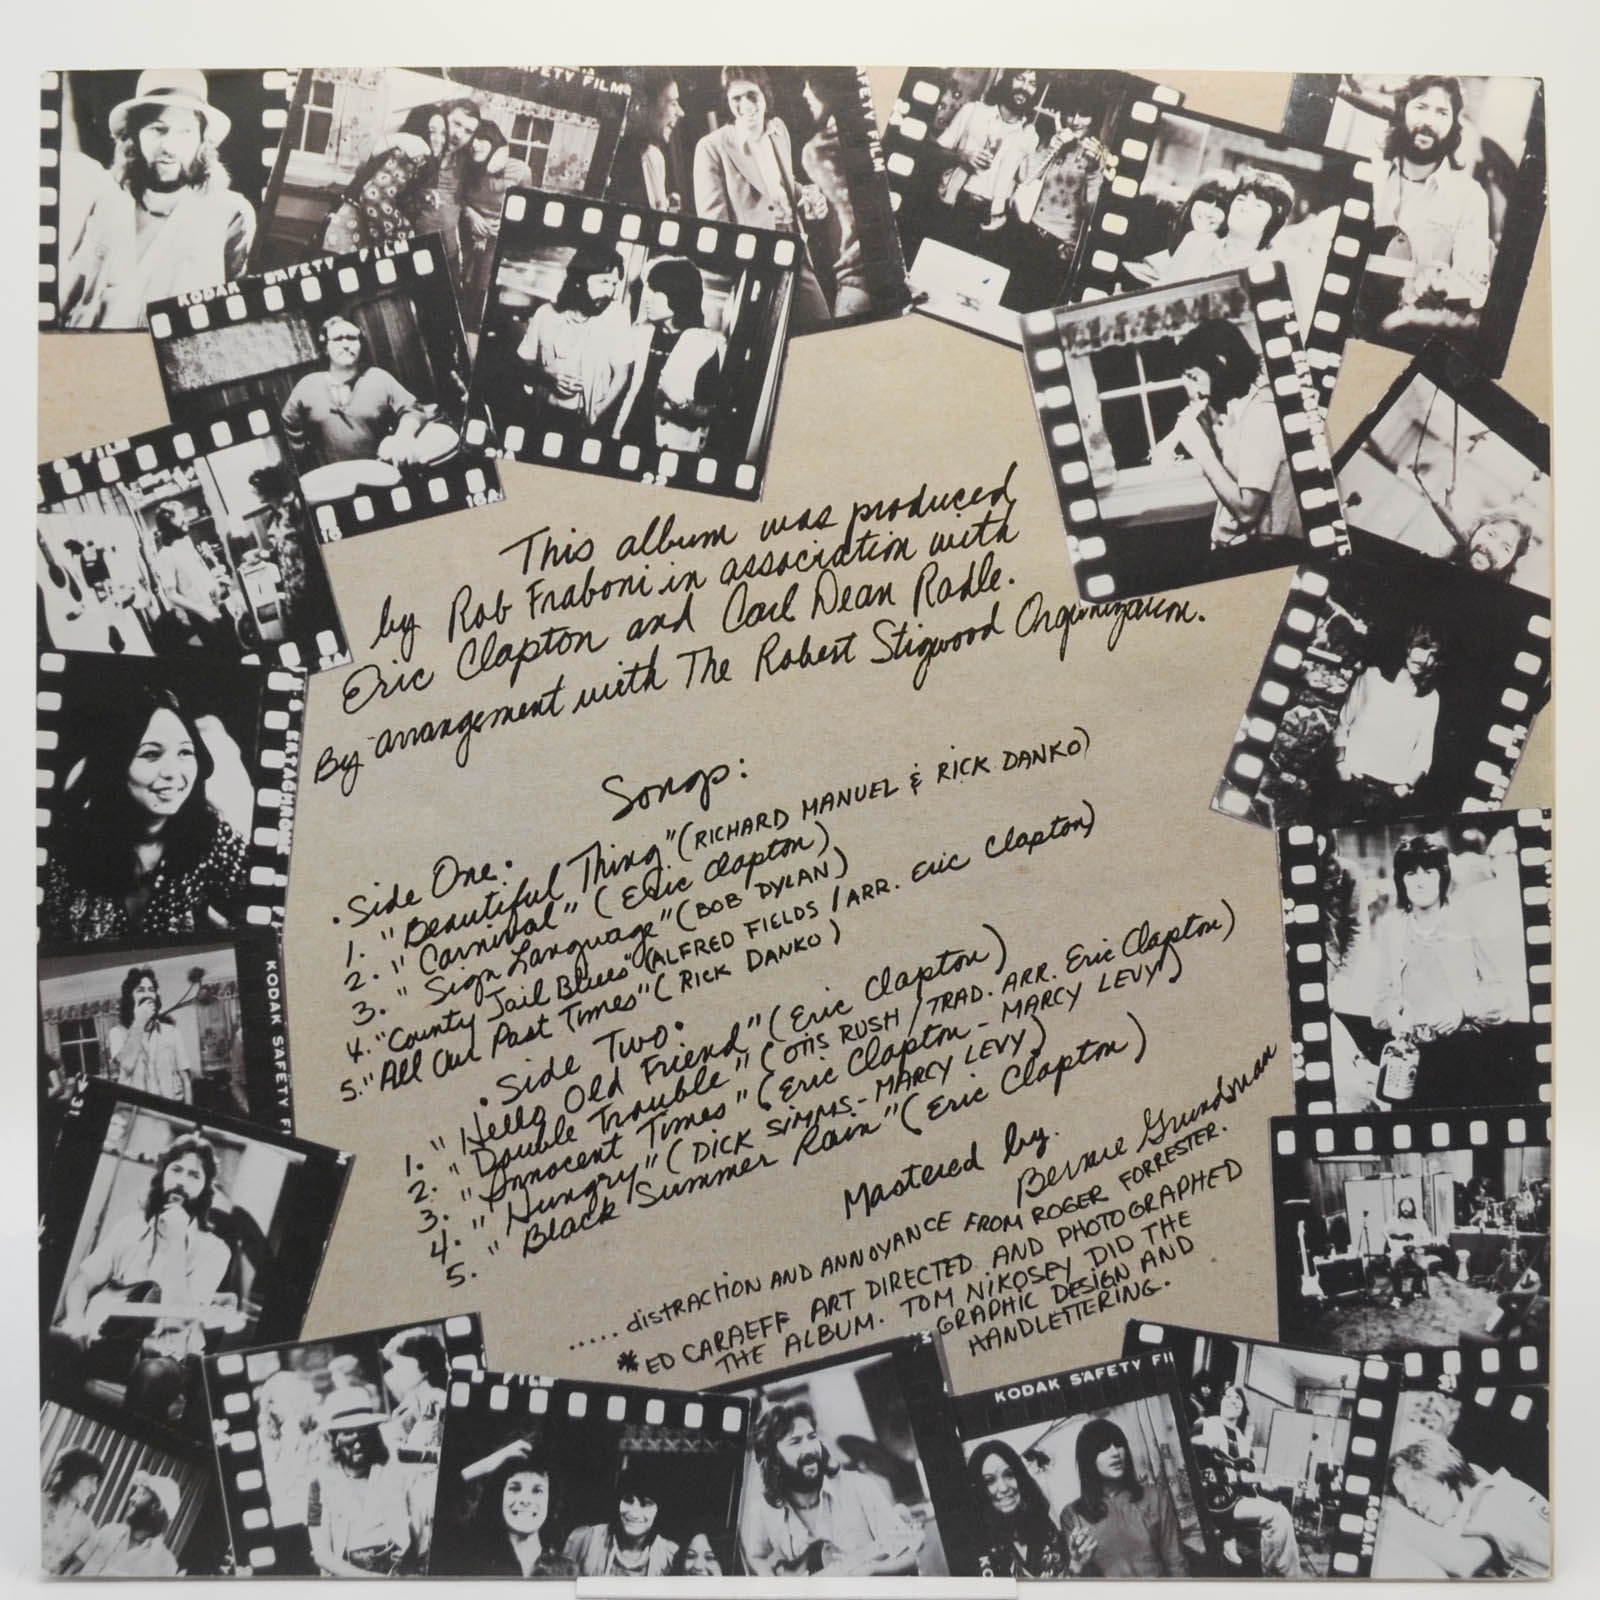 SAFETY FILM
FILM
KODAK SAFETY FILM
16A
16
This album was produced
by Rob Fraboni in association with
Eric Clapton and Carl Dean Radle.
By arrangement with The Robert Stigwood Organization.
Songs:
• Side One •
1. "Beautiful Thing" (RICHARD MANUEL & RICK DANKO)
2. "Carnival" (Eric Clapton)
3. "Sign Language" (BOB DYLAN)
4. "County Jail Blues" (ALFRED FIELDS / ARR. Eric Clapton)
5. "All Our Past Times" (RICK DANKO)
• Side Two •
1. "Hello Old Friend" (Eric Clapton)
2. "Double Trouble" (OTIS RUSH / TRAD. ARR. Eric Clapton)
3. "Innocent Times" (Eric Clapton - MARCY LEVY)
4. "Hungry" (DICK SIMMS - MARCY LEVY)
5. "Black Summer Rain" (Eric Clapton)
Mastered by
Bernie Grundman
..... distRACTION AND ANNOYANCE FROM ROGER FORRESTER.
*ED CARAEFF ART DIRECTED AND PHOTOGRAPHED
THE ALBUM. TOM NIKOSEY DID THE
GRAPHIC DESIGN AND
HANDLETTERING.
KODAK SAFETY F
31
KODAK SAFETY FI
KODAK